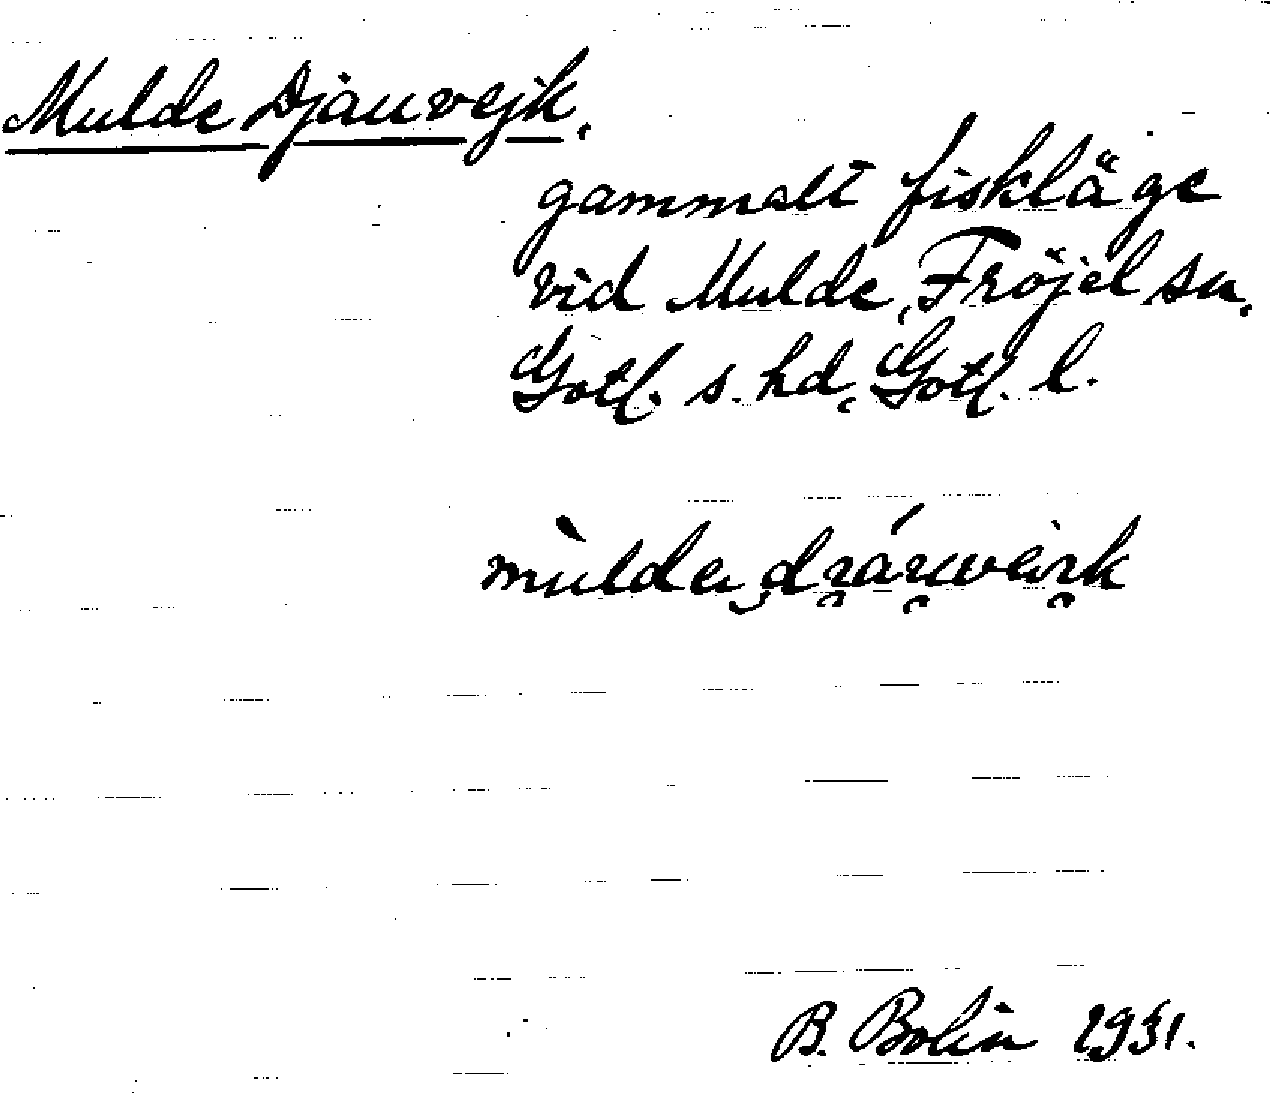 Mulde Djauvejk,
gammalt fiskläge
vid Mulde, Fröjel sn.
Gotl. s. hd, Gotl. l.
B. Bolin 1931.